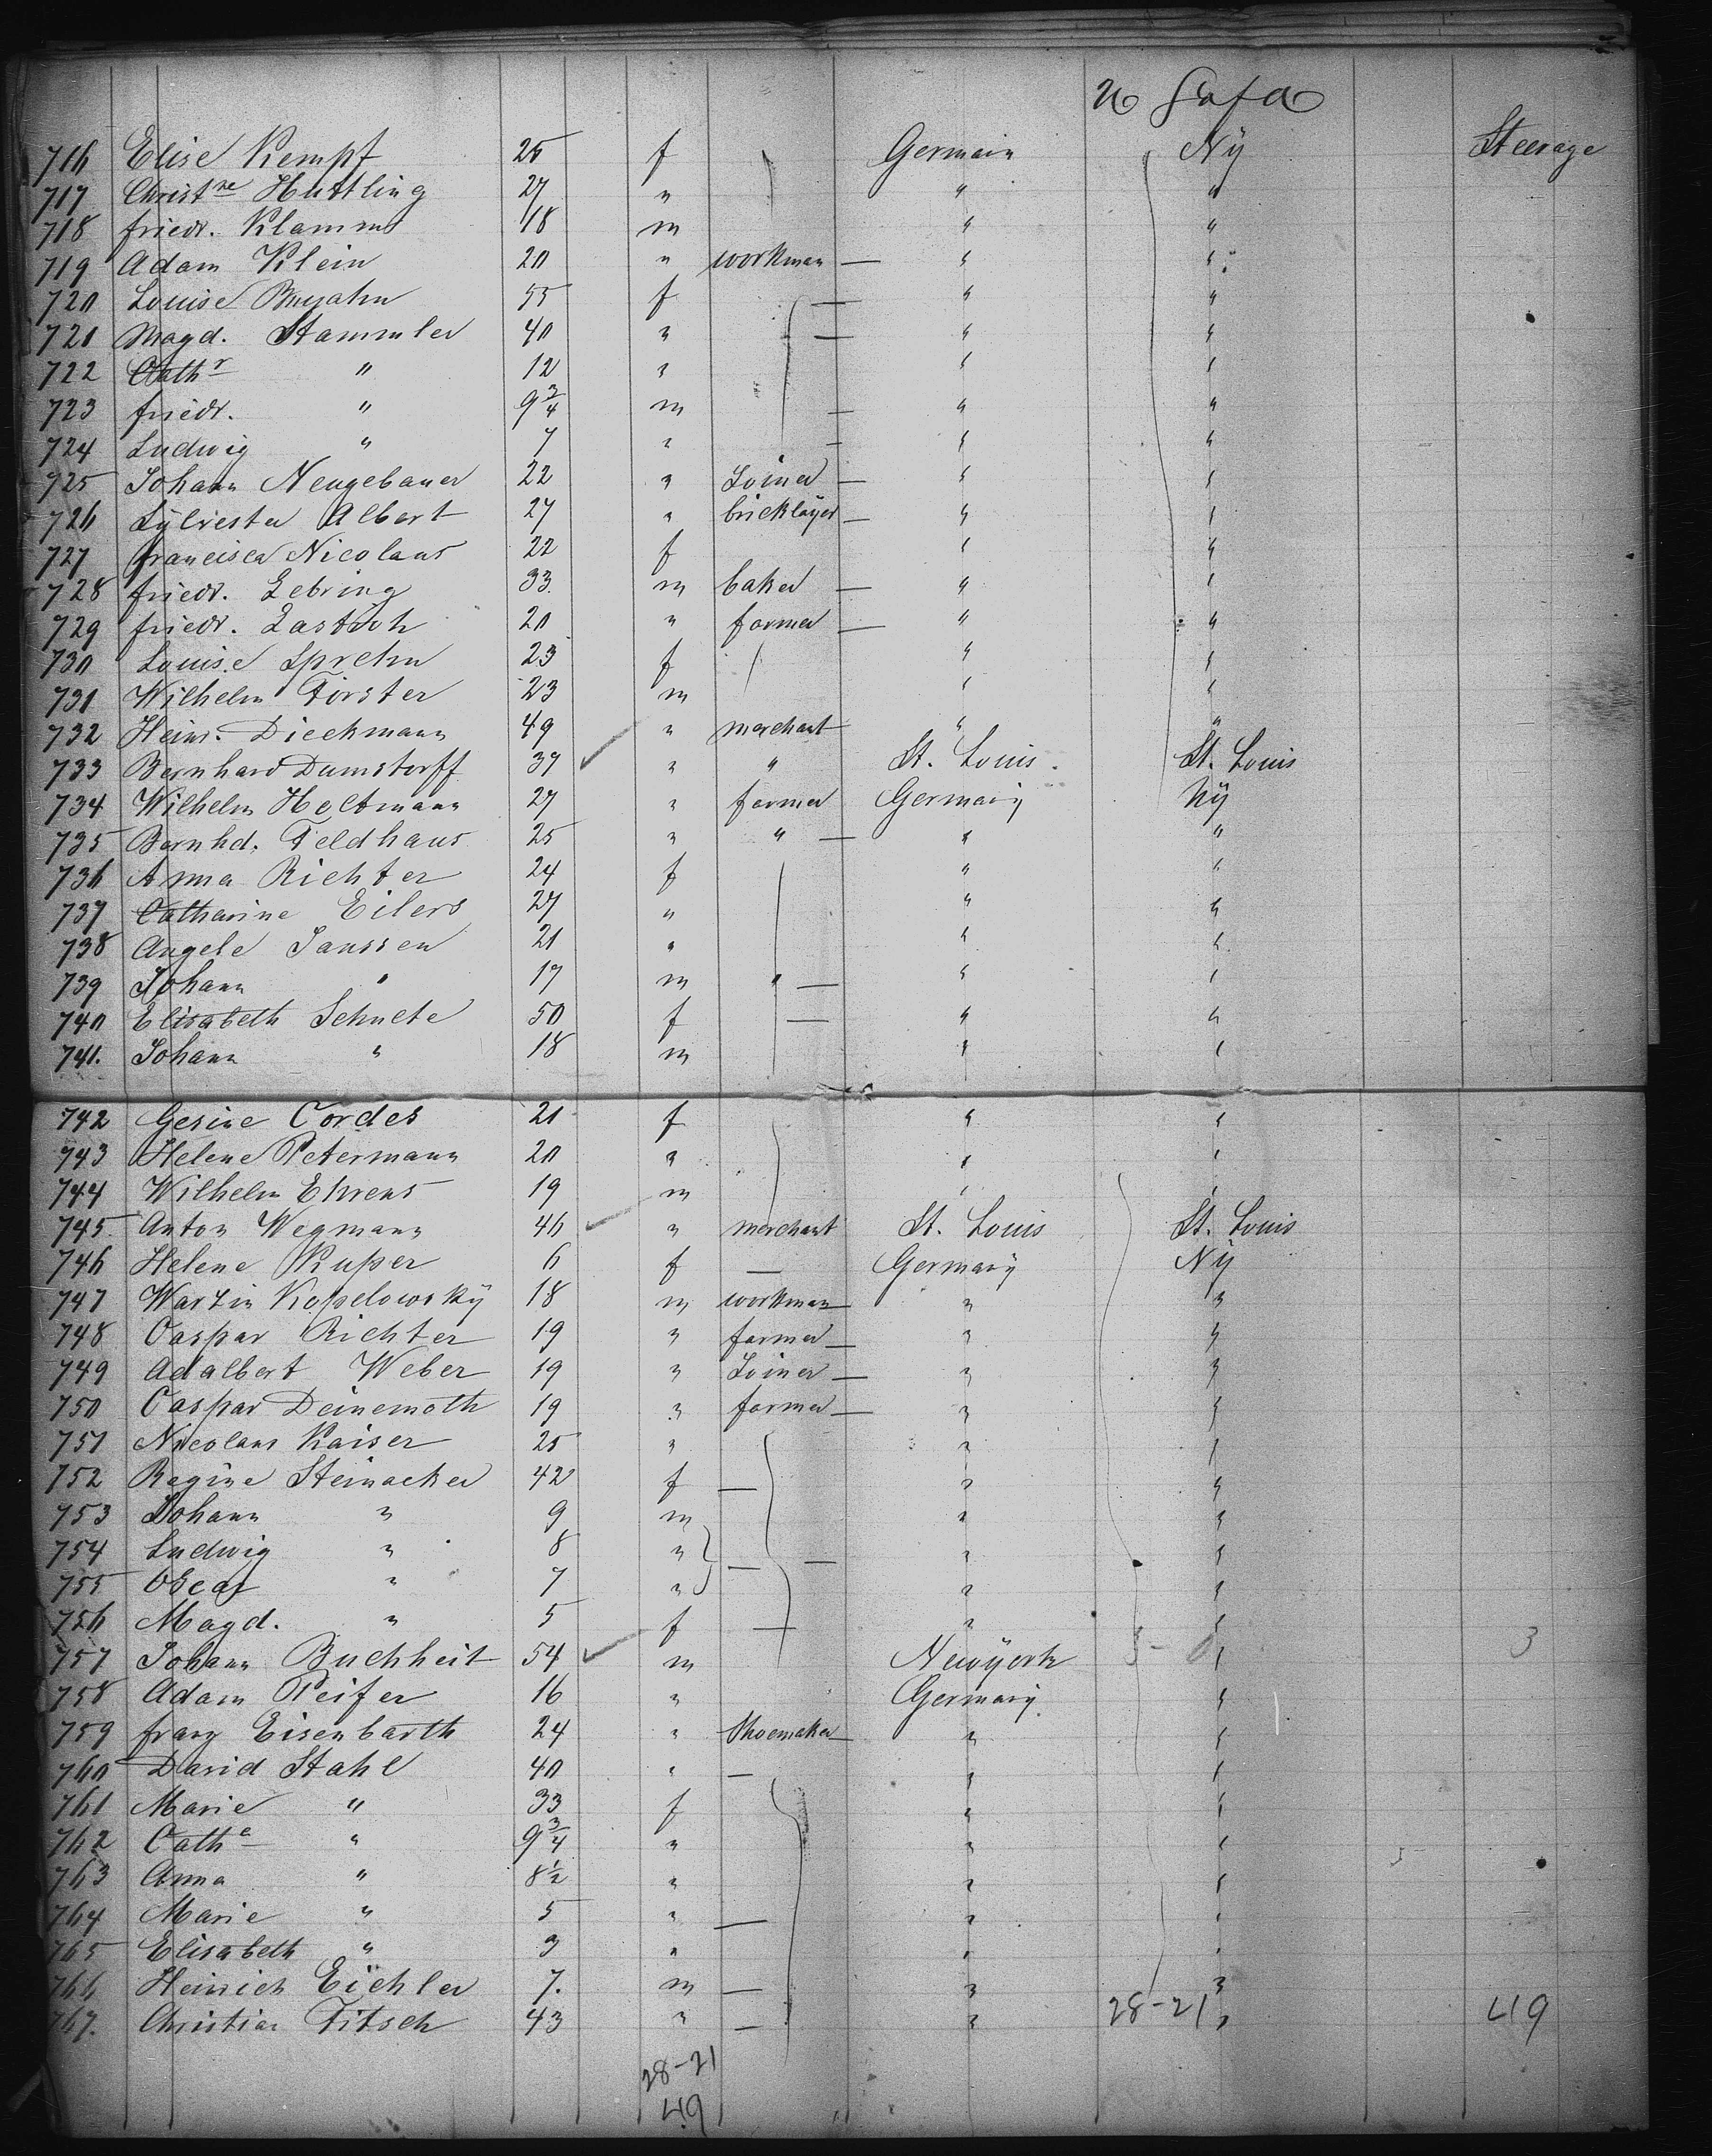 716 Elise Kempf 25 f Germain Ny Steerage
717 Christne Huttling 27 " " "
718 friedr. Klamm 18 m " "
719 Adam Klein 20 " workman — " "
720 Louise 55 f — " "
721 Magd. Stammler 40 " — " "
722 Cathr " 12 " " "
723 friedr. " 9 3/4 m — " "
724 Ludwig " 7 " — " "
725 Johann Neugebauer 22 " Joiner — " "
726 Sylvester Albert 27 " bricklayer — " "
727 francisca Nicolaus 22 f " "
728 friedr. Zebring 33 m baker — " "
729 friedr. Zastroh 20 " farmer — " "
730 Louise Sprehn 23 f " "
731 Wilhelm Förster 23 m " "
732 Heinr. Dieckmann 49 " merchant " "
733 Bernhard Dumstorff 37 ✓ " " St. Louis St. Louis
734 Wilhelm Holtmann 27 " farmer Germany Ny
735 Bernhd. Feldhaus 25 " " — " "
736 Anna Richter 24 f " "
737 Catharine Eilers 27 " " "
738 Angele Janssen 21 " " "
739 Johann " 17 m " — " "
740 Elisabeth Schulte 50 f — " "
741. Johann " 18 m " "
742 Gesine Cordes 21 f " "
743 Helene Petermann 20 " " "
744 Wilhelm Ehrens 19 m " "
745 Anton Wegmann 46 ✓ " merchant St. Louis St. Louis
746 Helene Kuper 6 f — Germany Ny
747 Martin Kopelowsky 18 m workman — " "
748 Caspar Richter 19 " farmer — " "
749 Adalbert Weber 19 " Joiner — " "
750 Caspar Deinemoth 19 " farmer — " "
751 Nicolaus Kaiser 25 " " "
752 Regine Steinacker 42 f — " "
753 Johann " 9 m " "
754 Ludwig " 8 " — " "
755 Oscar " 7 " — " "
756 Magd. " 5 f — " "
757 Johann Buchheit 54 ✓ m Newyork " 3
758 Adam Peifer 16 " Germany "
759 franz Eisenbarth 24 " Shoemaker — " "
760 David Stahl 40 " — " "
761 Marie " 33 f " "
762 Cathe " 9 3/4 " " "
763 Anna " 8 1/2 " " "
764 Marie " 5 " — " "
765 Elisabeth " 3 " " "
766 Heinrich Eichler 7. m — " "
767. Christian Fitsch 43 " — " 28-21 " 49
28-21
49